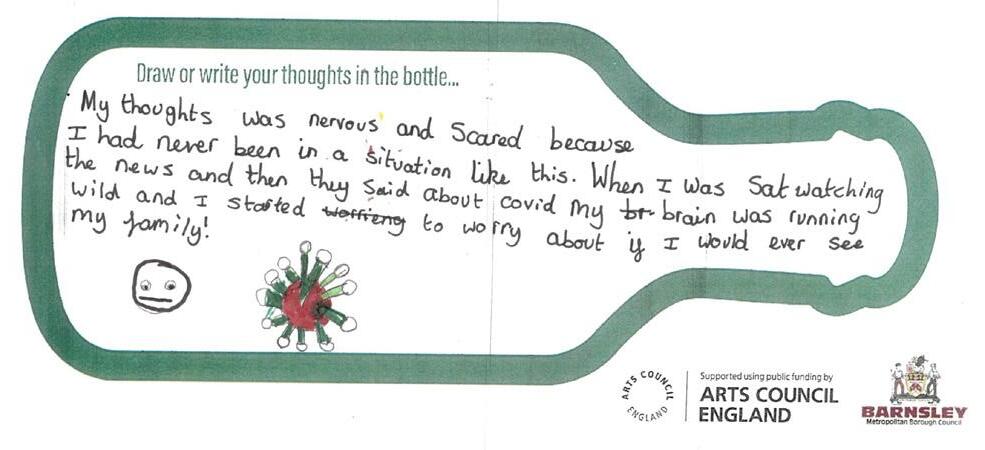 Draw or write your thoughts in the bottle...
My thoughts was nervous and Scared because
I had never been in a situation like this. When I was Sat watching
the news and then they said about covid my br brain was running
wild and I started worrieng to worry about if I would ever see
my family!
ARTS COUNCIL ENGLAND
Supported using public funding by
ARTS COUNCIL
ENGLAND
BARNSLEY
Metropolitan Borough Council